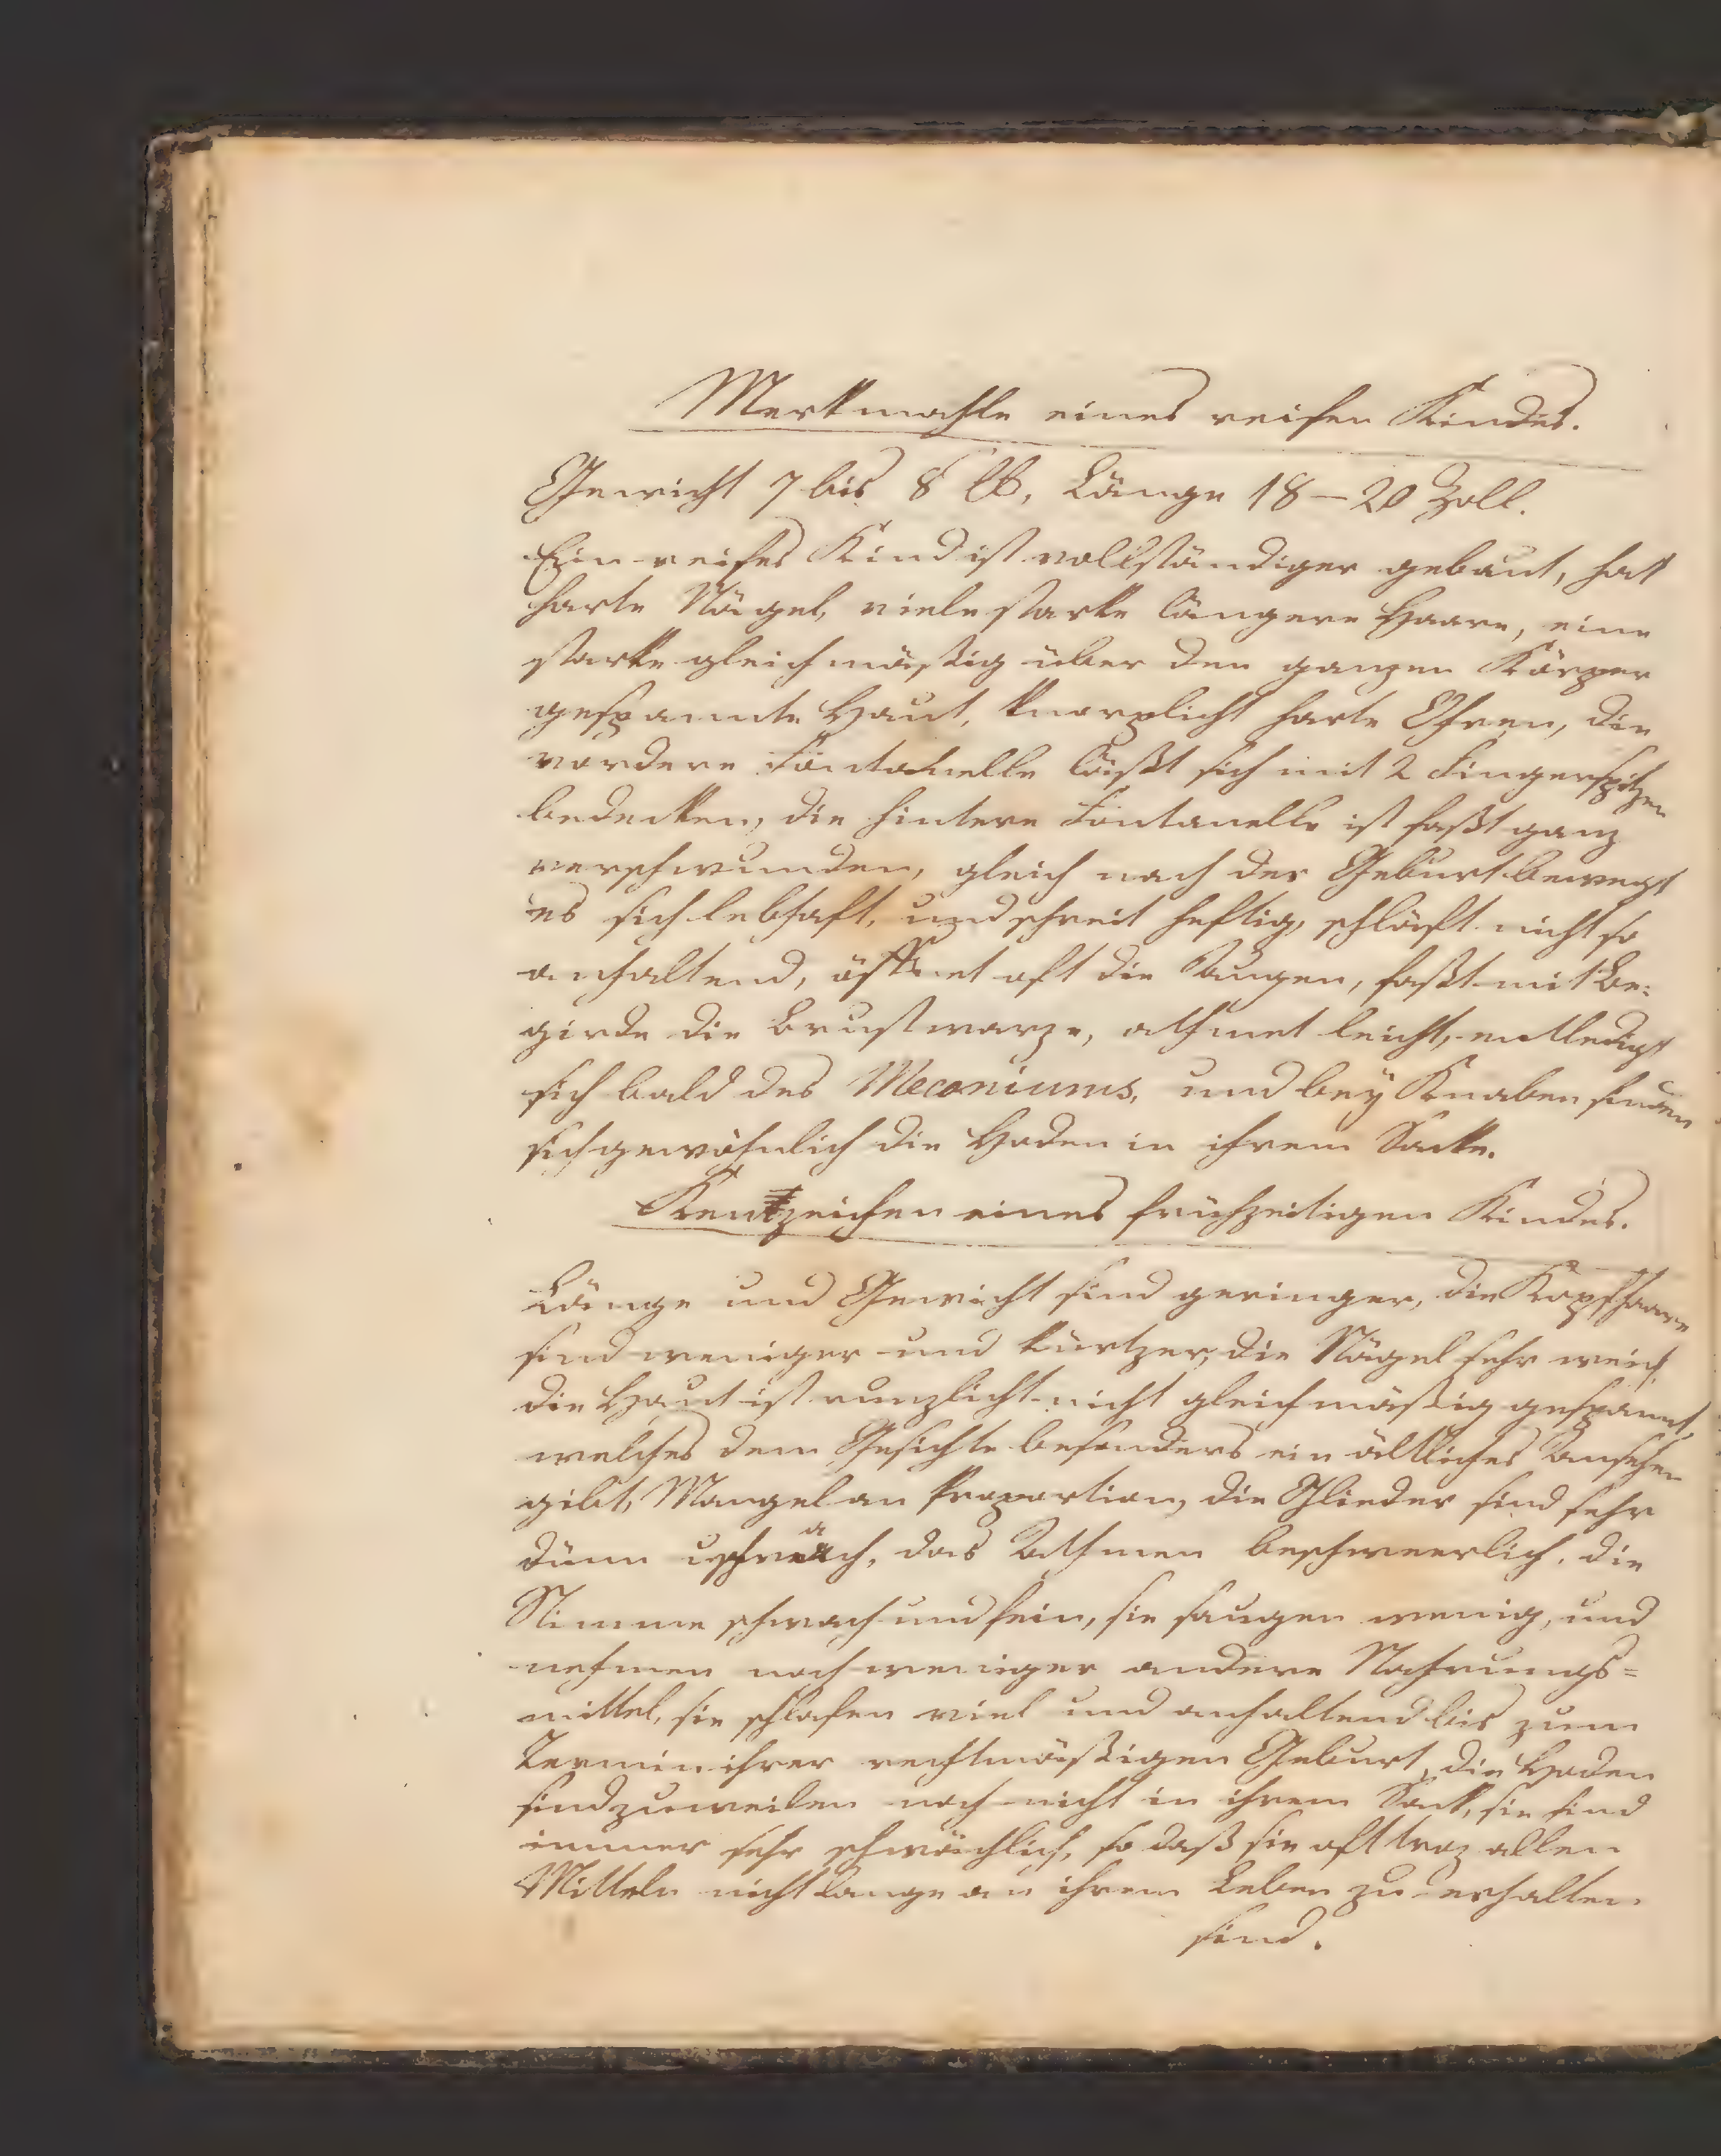 Merkmahle eines reifen Kindes.
Gewicht 7 bis 8 ℔, Länge 18–20 Zoll.
Ein reifes Kind ist vollständiger gebaut, hat
harte Nägel, viele starke längere Haare, eine
starke gleichmäßig über den ganzen Körper
gespannte Haut, knorplicht harte Ohren, die
vordere Fontanelle läßt sich mit 2 Fingerspitzen
bedecken, die hintere Fontanelle ist faßt ganz
verschwunden, gleich nach der Geburt bewegt
es sich lebhaft, und schreit heftig, schläft nicht so
anhaltend, öffnet oft die Augen, faßt mit Be:
girde die Brustwarze, athmet leicht, entledigt
sich bald des Meconiums, und bey Knaben finden
sich gewöhnlich die Hoden in ihrem Sacke.
Kentzeichen eines frühzeitigen Kindes.
Länge und Gewicht sind geringer, die Kopfhaare
sind weniger und kürtzer, die Nägel sehr weich,
die Haut ist runzlicht nicht gleichmäßig gespannt,
welches dem Gesichte besonders ein ältliches Ansehen
gibt, Mangel an Proportion, die Glieder sind sehr
dünn u schwach, das Athmen beschweerlich, die
Stimme schwach und fein, sie saugen wenig, und
nehmen noch weniger andere Nahrungs=
mittel, sie schlafen viel und anhaltend bis zum
Termin ihrer rechtmäßigen Geburt, die Hoden
sind zuweilen noch nicht in ihrem Sack, sie sind
immer sehr schwächlich, so daß sie oft troz allen
Mitteln nicht lange an ihrem Leben zu erhalten
sind.